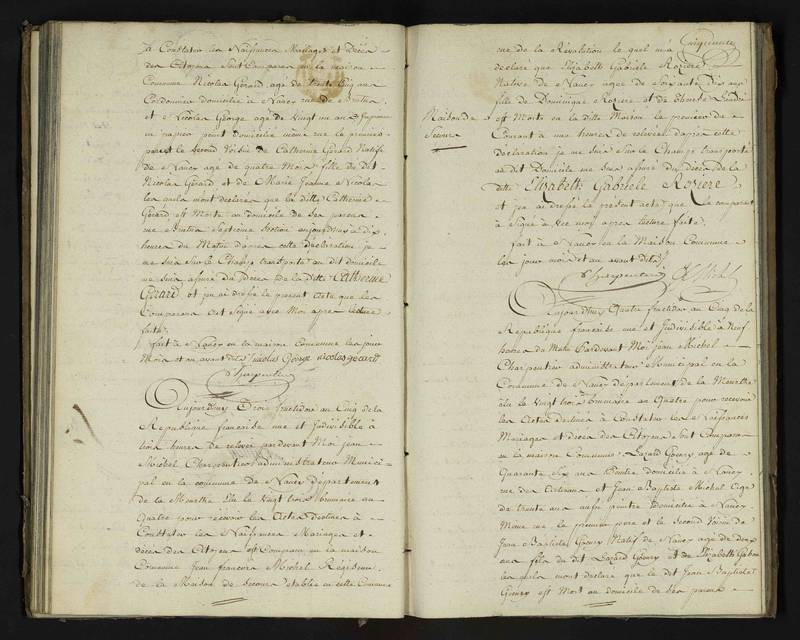 à Constater les Naissances Mariages et Décès
des Citoyens sont comparus en la maison
Commune Nicolas Gérard agé de trente cinq ans
Cordonnier domicilié à Nancy rue de
et Nicolas George agé de vingt un ans
en papier peint domicilié même rue le premier
pere et le Second Voisin de Catherine Gérard Native
de Nancy age de quatre Mois fille du dit
Nicolas Gérard, et de Marie Jeanne Nicolas
lesquels mont déclaré que la ditte Catherine
Gérard est Morte au domicile de ses pere et
Septieme Section aujourdhuy à dix
heures du Matin dapres cette déclaration je
me suis sur le Champ transporté au dit domicile
me suis assuré du Décès de la Ditte Catherine
Gérard et jai dressé le present acte que les
Comparans ont Signé avec Moi apres lecture
faite.
fait à Nancy en la maison Commune les jour
Mois et an avant dits Nicolas George nicolas gerard
Charpentier
Aujourdhuy Trois fructidor an Cinq de la
République française une et Indivisible à
trois heures de relevée pardevant Moi jean
Michel Charpentier administrateur Munici-
pal en la commune de Nancy département
de la Meurthe Elu le Vingt trois brumaire an
Quatre pour recevoir les Actes Destinés à
Constater les Naissances Mariages et
décès des Citoyens est Comparu en la maison
Commune Jean françois Michel Régisseur
de la Maison de Secours établie en cette Commune
rue de la Révolution le quel m'a
déclaré que Elizabeth Gabriele Roziere
Native de Nancy agee de Soixante Dix ans
fille de Dominique Roziere et de
Maison de
Secours
est Morte en la ditte Maison le premier de
Courant à une heure de relevée dapres cette
déclaration je me suis sur le Champ transporté
au dit Domicile me suis assuré du Décès de la
ditte Elizabeth Gabriele Roziere
et jai dressé le présent acte que le comparant
à Signé avec moi apres lecture faite.
fait à Nancy en la Maison Commune
les jour mois et an avant dits
Charpentier Michel
Aujourdhuy Quatre fructidor an Cinq de la
République française une et Indivisible à Neuf
heures du Matin Pardevant Moi jean Michel
Charpentier administrateur Municipal en la
Commune de Nancy département de la Meurthe
élu le Vingt trois brumaire an Quatre pour recevoir
les Actes destinés à Constater les Naissances
Mariages et décès des Citoyens sont Comparus
en la maison Commune Lazard Goury agé de
Quarante Six ans Peintre domicilié à Nancy
rue des Artisans et Jean Baptiste Michel agé
de trente ans aussi peintre Domicilié à Nancy
Même rue le premier pere et le Second Voisin de
Jean Baptiste Goury Natif de Nancy agé de deux
ans fils du dit Lazard Goury et de Elizabeth
lesquels mont declaré que le dit Jean Baptiste
Goury est Mort au domicile de ses pere et